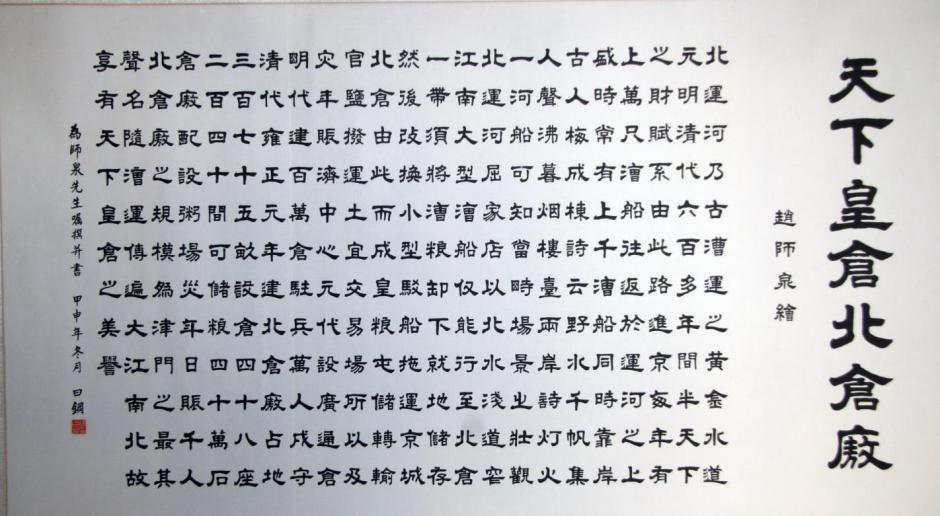 天下皇倉北倉廒
趙師泉繪
北運河乃古漕運之黃金水道
元明清代六百多年間半天下
之財賦系由此路進京每年有
上萬尺漕船往返於運河之上
盛時常有上千漕船同時靠岸
古人梅成棟詩云野水千帆集
人聲沸暮烟樓臺兩岸詩灯火
一河船可知當時場景之壯觀
北運河屈家店以北水淺道窄
江南大型漕船仅能行至北倉
一帶須將漕粮卸下就地儲存
然後改換小型駁船拖運京城
北倉由此而成皇粮屯儲轉輸
官鹽撥運土宜交易場所以及
灾年賑濟中心元代設廣通倉
明代建百萬倉駐兵萬人戍守
清代雍正元年建北倉廒占地
三百七十五畝設倉四十八座
二百四十間可儲粮四十萬石
倉廒配設粥場災年日賑千人
北倉廒之規模為津門之最其
聲名隨漕運傳遍大江南北故
享有天下皇倉之美譽
為師泉先生囑撰并書 甲申年冬月 曰鋼